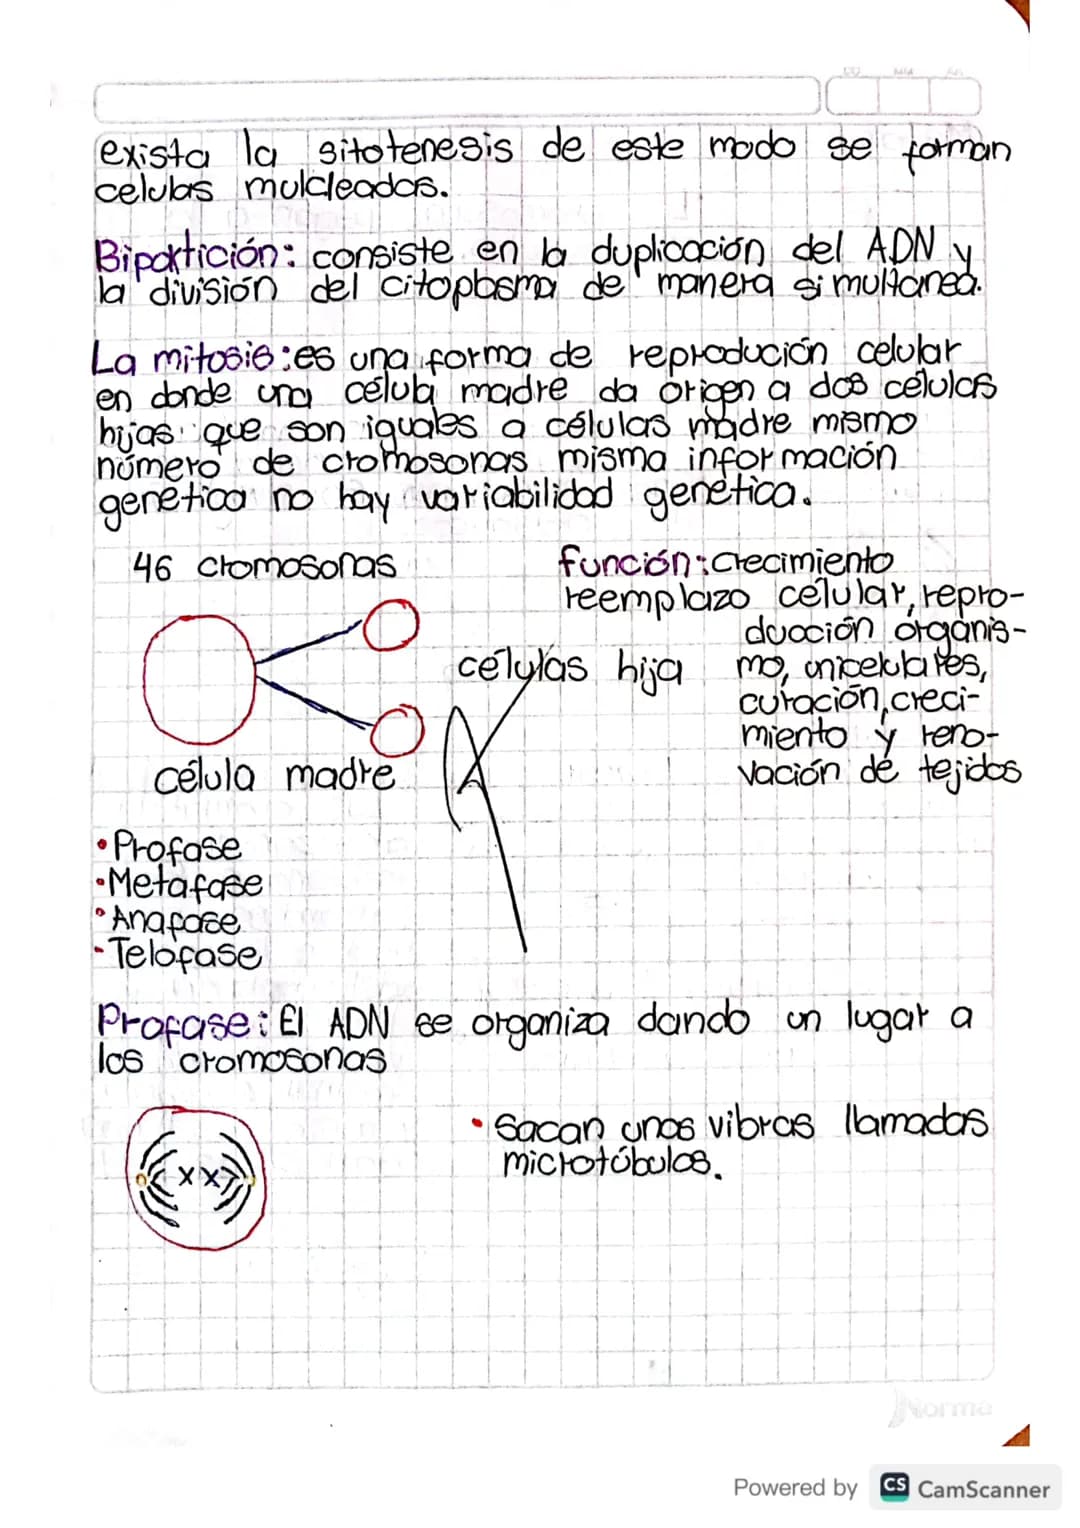 exista la sitotenesis de este modo se forman
celulas mulcleadas.
Bipartición: consiste en la duplicación del ADN y
la división del citoplasma de manera simultanea.
La mitosis: es una forma de reprodución celular
en donde una célula madre da origen a dos células
hijas que son iguales a células madre mismo
número de cromosonas misma información
genética no hay variabilidad genética.
46 cromosonas
función: crecimiento
reemplazo celular, repro-
ducción organis-
mo, unicelulares,
curación, creci-
miento y reno-
vación de tejidos
células hija
célula madre
• Profase
• Metafase
• Anafase
• Telofase
Profase: El ADN se organiza dando un lugar a
los cromosonas
• Sacan unas vibras llamadas
microtúbulos.
x x
Norma
Powered by CS CamScanner